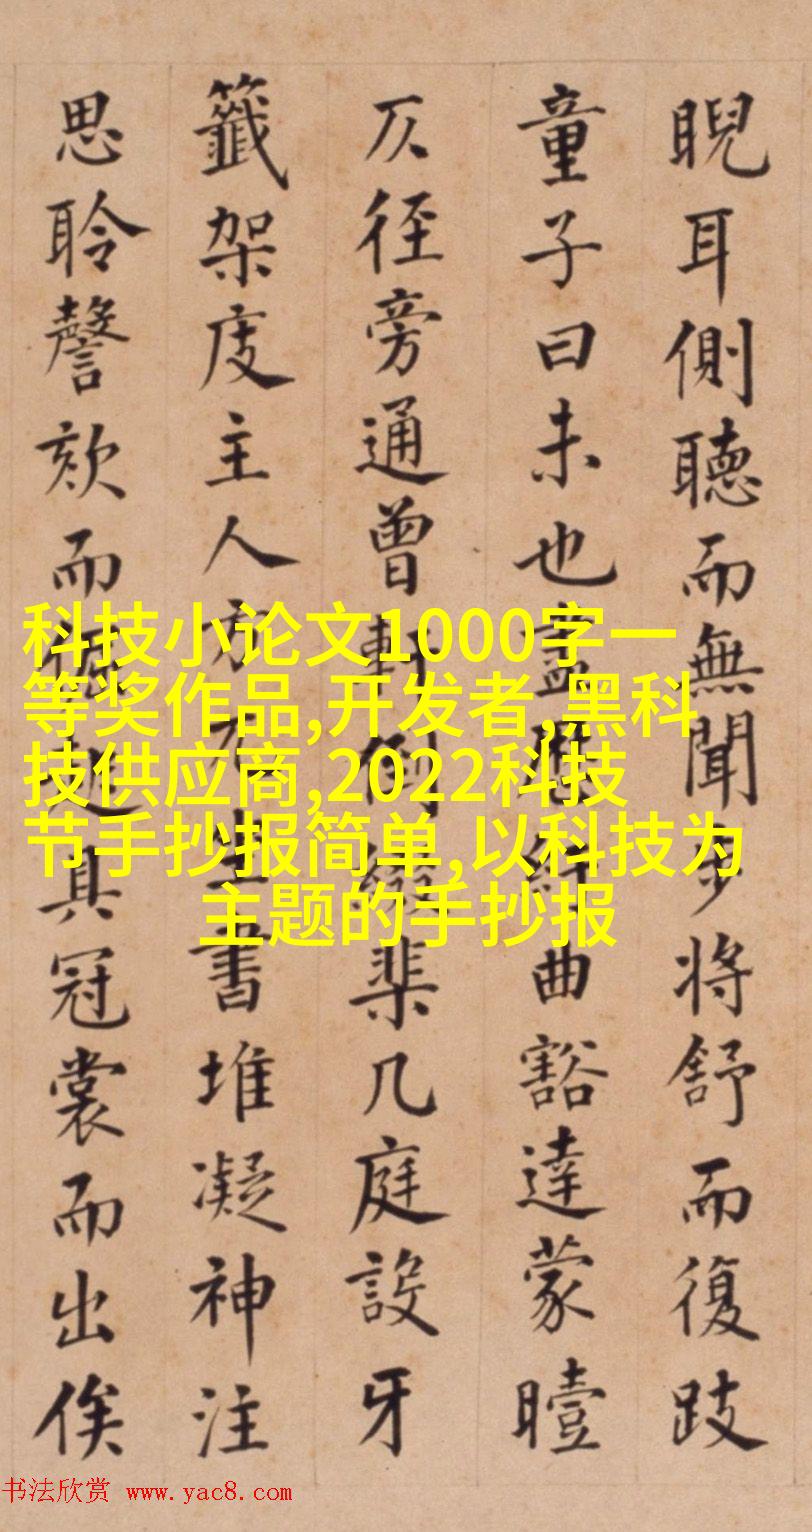 睨耳側聽而無聞將舒而復跂
童子曰未也盍曲豁達蒙曀
仄徑旁通曾軒棐几庭設牙
籤架庋主人方書堆凝神注
思聆謦欬而具冠裳而出俟
科技小论文1000字一
等奖作品,开发者,黑科
技供应商,2022科技
节手抄报简单,以科技为
主题的手抄报
书法欣赏 www.yac8.com